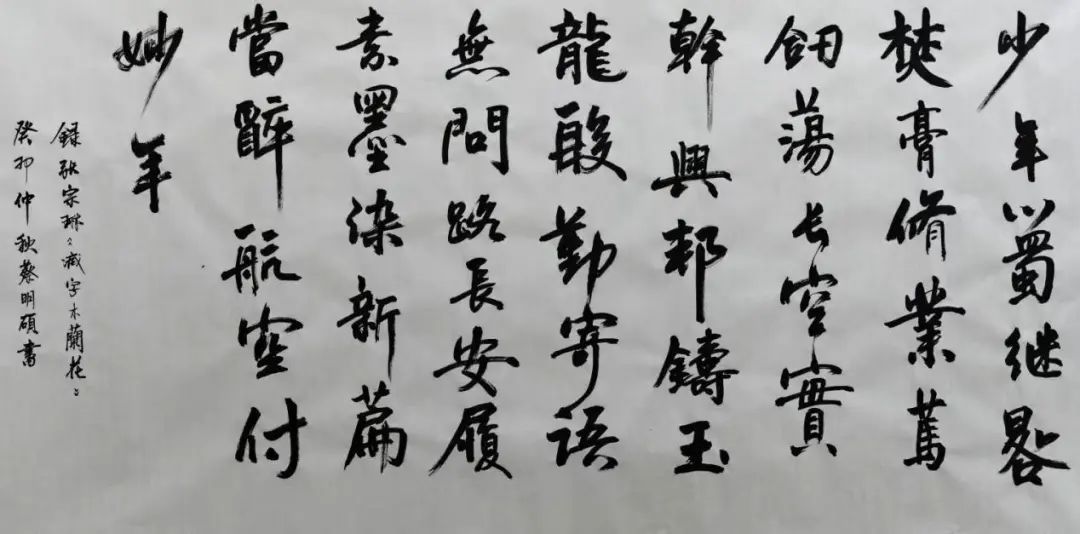 少年蜀继晷
焚膏脩業篤
釰蕩长空實
幹興邦鑄玉
龍殷勤寄语
無問路長安履
素墨染新篇
當辭航空付
妙年
録张宗琳「减字木蘭花」
癸卯仲秋蔡明硕書